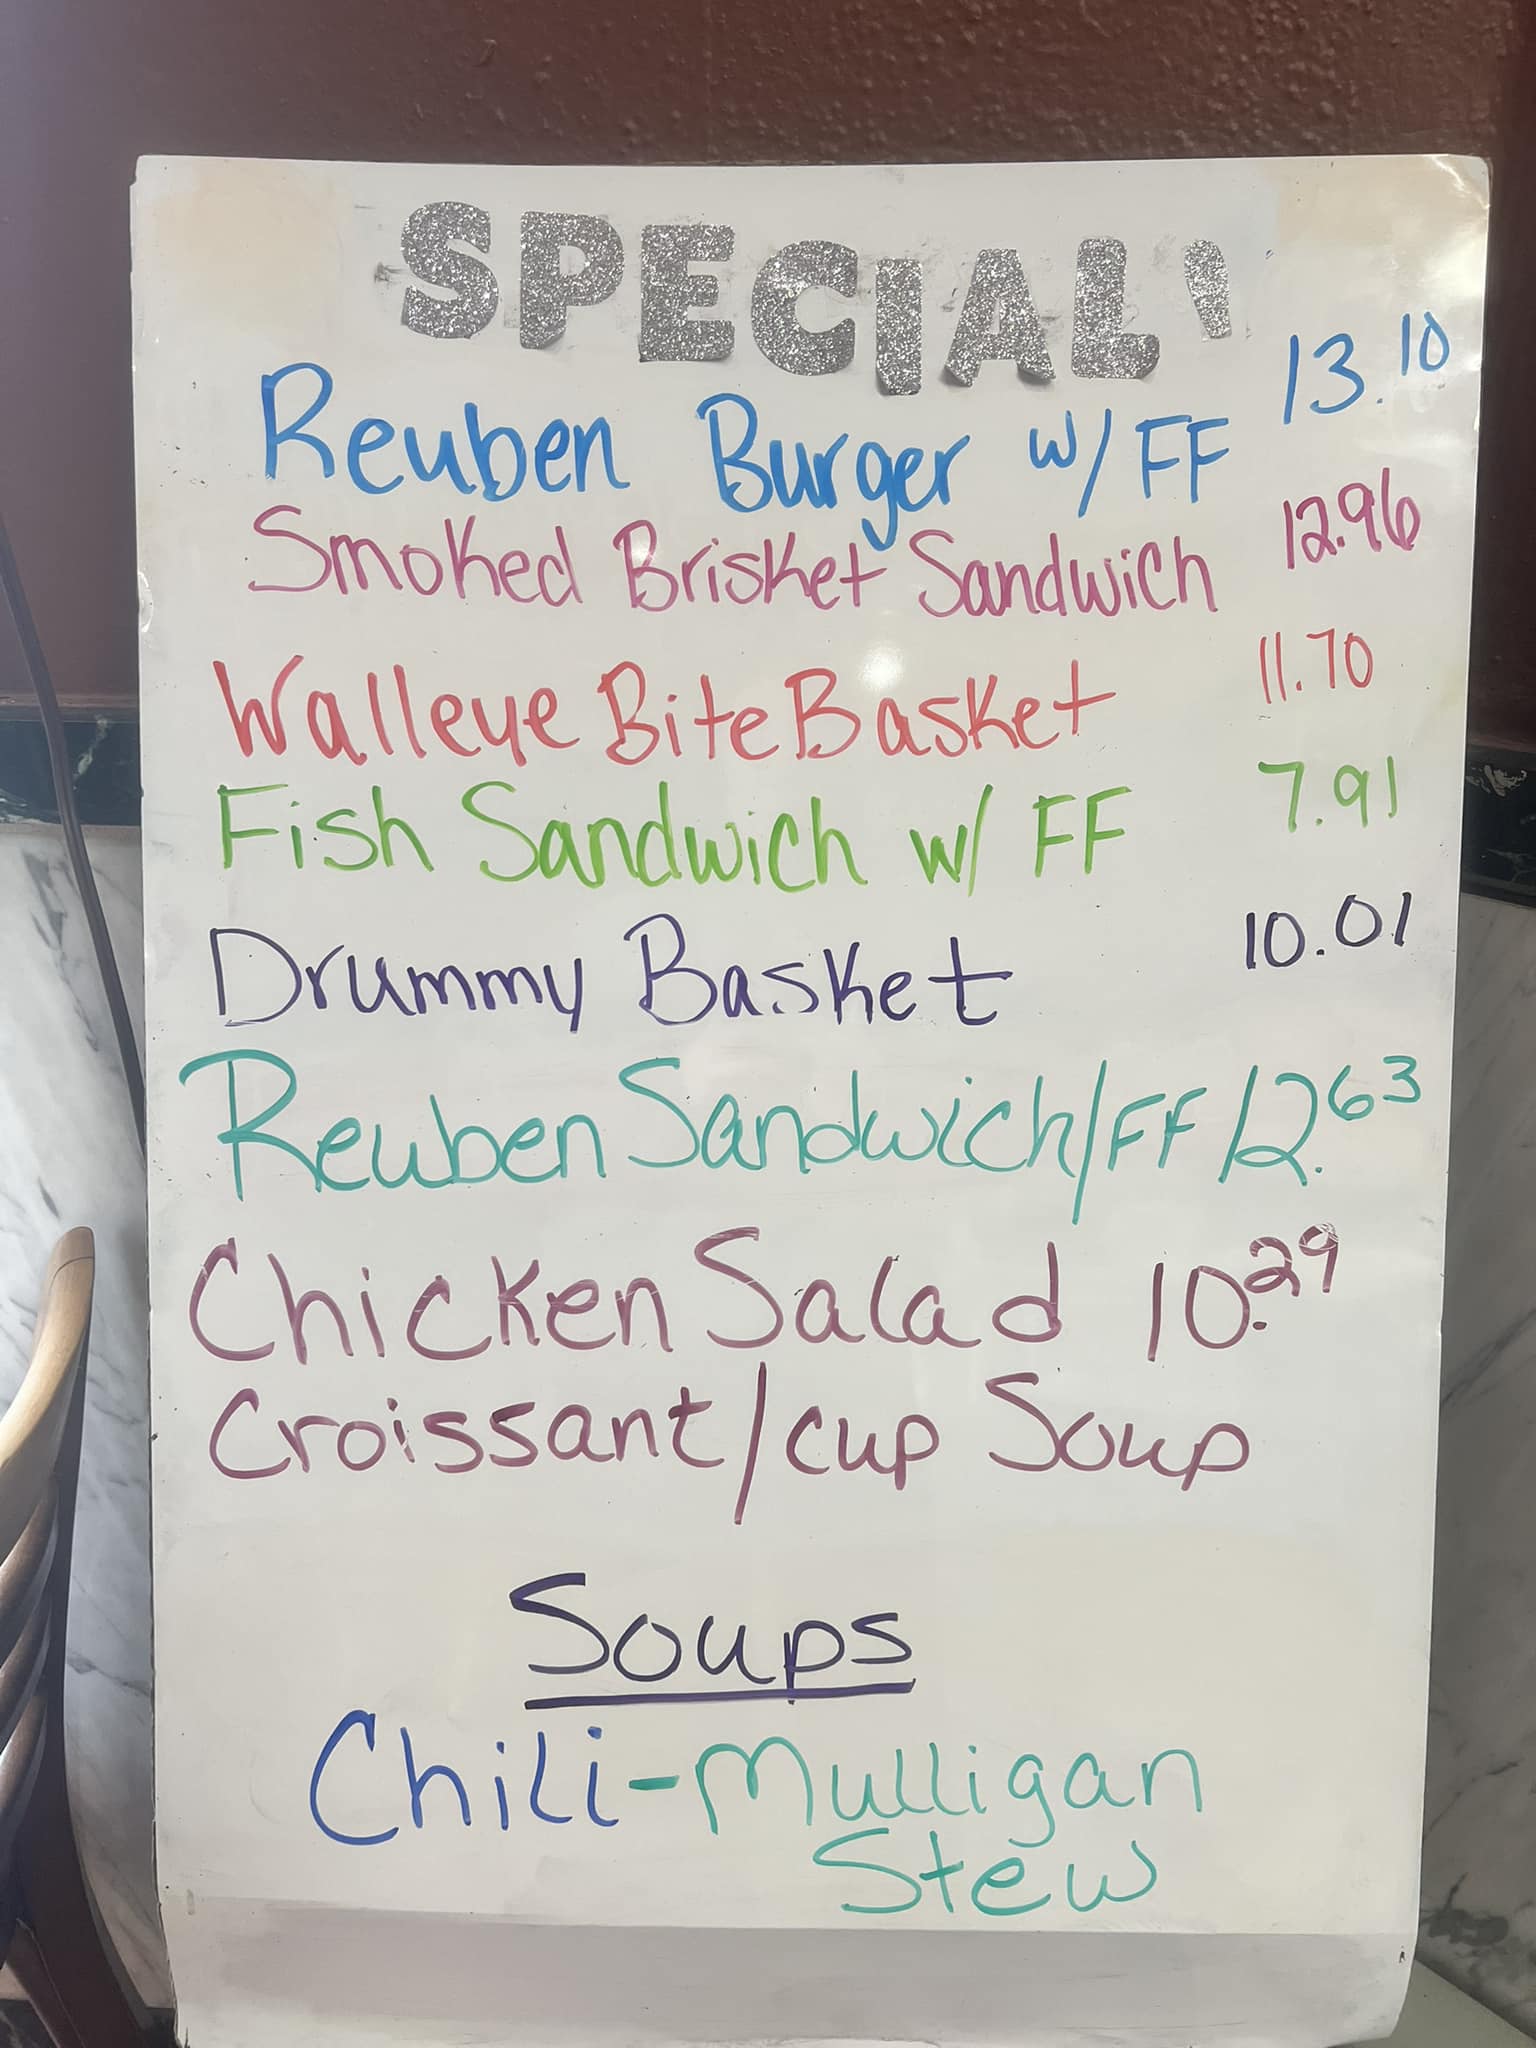 SPECIAL
Reuben Burger w/ FF 13.10
Smoked Brisket Sandwich 12.96
Walleye Bite Basket 11.70
Fish Sandwich w/ FF 7.91
Drummy Basket 10.01
Reuben Sandwich/FF 12.63
Chicken Salad 10.29
Croissant/cup Soup
Soups
Chili-Mulligan
Stew